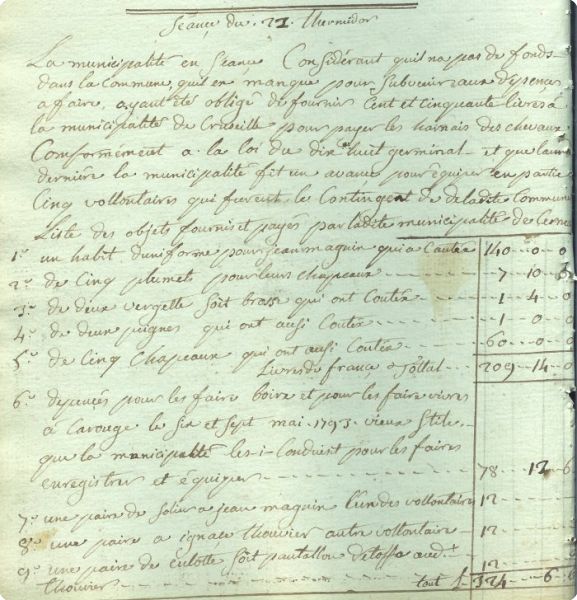 Séance du 21 thermidor
La municipalité en Séance Considérant quil na pas de fonds
dans la Commune, quil en manque pour Subvenir aux dépences
a faire, ayant été obligé de fournir Cent et Cinquante livres a
la municipalité de Cruseille pour payer les harnais des chevaux
Conformément a la loi du dix huit germinal et que lannée
dernière la municipalité fit un avance pour équiper en partie
Cinq vollontaires qui firent le Contingent de ladite Commune
Liste des objets fournis et payés par ladite municipalité de Cerne
1° un habit duniforme pour jean maguin qui a Coutéz 140 0 0
2° de Cinq plumet pour leurs chapeaux 7 10
3° de deux vergette soit brosse qui ont Coutéz 1 4 0
4° de deux peignes qui ont aussi Coutéz 1 0 0
5° de Cinq Chapeaux qui ont aussi Coutéz 60 0 0
Livres de france Total 209 14 0
6° dépences pour les faire boire et pour les faire vivres
a Carouge le Six et Sept mai 1793 vieux Stile
que la municipalité les i Conduisit pour les faires
enregistrer et équiper 78 12 6
7° une paire de Solier a jean maguin l'un des vollontaires 12
8° une paire a ignace thouvier autre vollontaire 12
9° une paire de culotte Soit pantallon detoffe aud.t
thouvier 12
tout 324 6 6